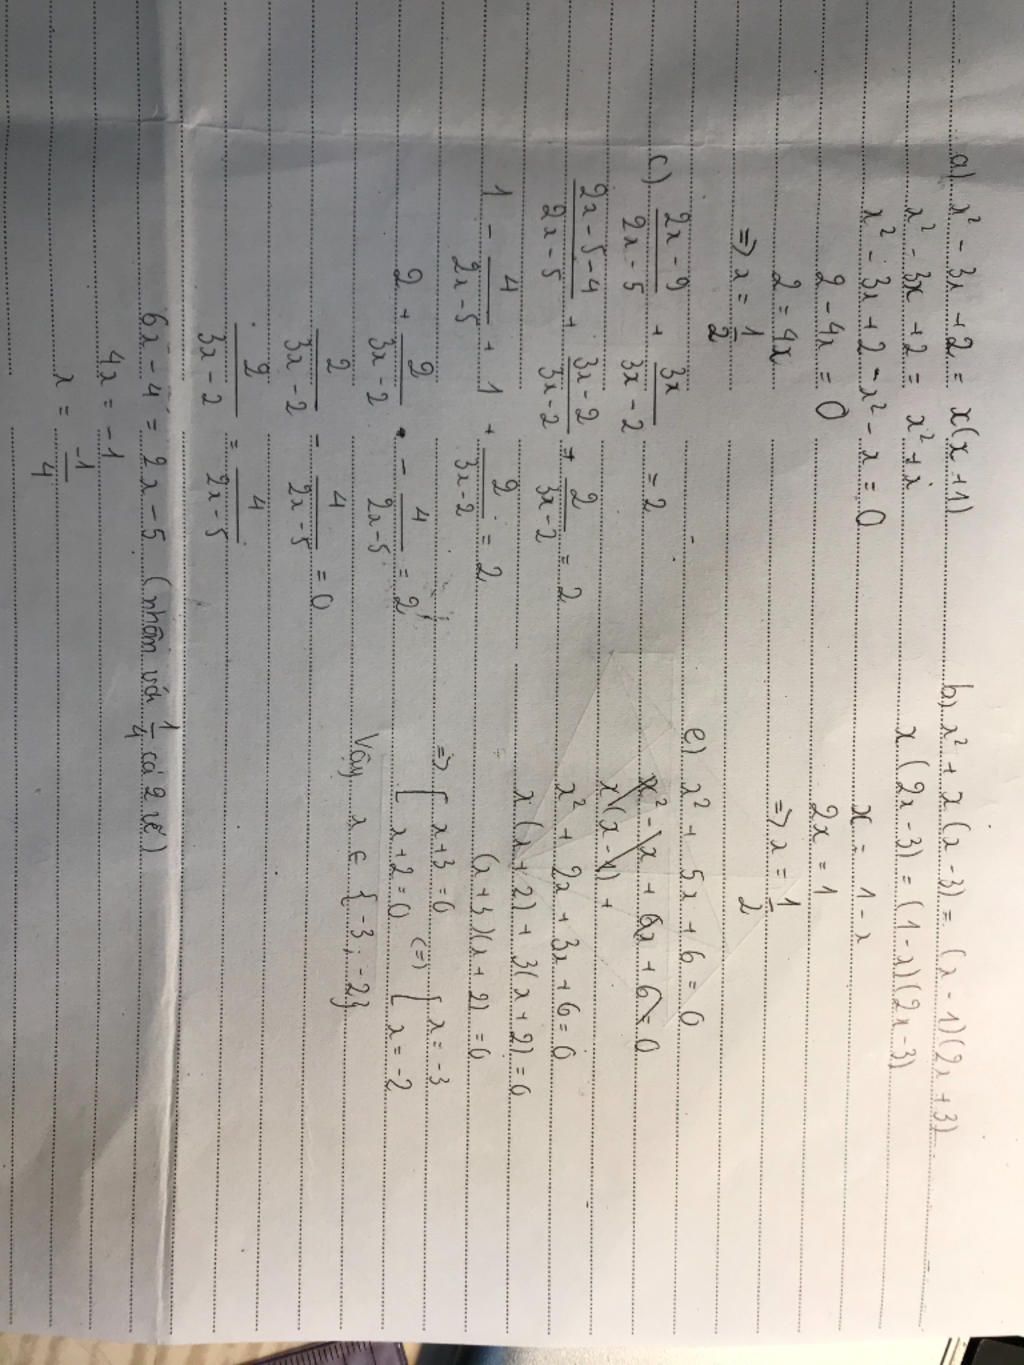 a) x² - 3x + 2 = x(x + 1)
x² - 3x + 2 = x² + x
x² - 3x + 2 - x² - x = 0
2 - 4x = 0
2 = 4x
=> x = 1/2
c) (2x - 9)/(2x - 5) + 3x/(3x - 2) = 2
(2x - 5 - 4)/(2x - 5) + (3x - 2)/(3x - 2) + 2/(3x - 2) = 2
1 - 4/(2x - 5) + 1 + 2/(3x - 2) = 2
2 + 2/(3x - 2) - 4/(2x - 5) = 2
2/(3x - 2) - 4/(2x - 5) = 0
2/(3x - 2) = 4/(2x - 5)
6x - 4 = 2x - 5 (nhân với 1/4 cả 2 vế)
4x = -1
x = -1/4
b) x² + x(x - 3) = (x - 1)(2x + 3)
x(2x - 3) = (1 - x)(2x - 3)
x = 1 - x
2x = 1
=> x = 1/2
e) x² + 5x + 6 = 0
x² - x + 6x + 6 = 0
x(x - 1) +
x² + 2x + 3x + 6 = 0
x(x + 2) + 3(x + 2) = 0
(x + 3)(x + 2) = 0
=> [ x + 3 = 0 <=> [ x = -3
[ x + 2 = 0 [ x = -2
Vậy x ∈ { -3; -2}